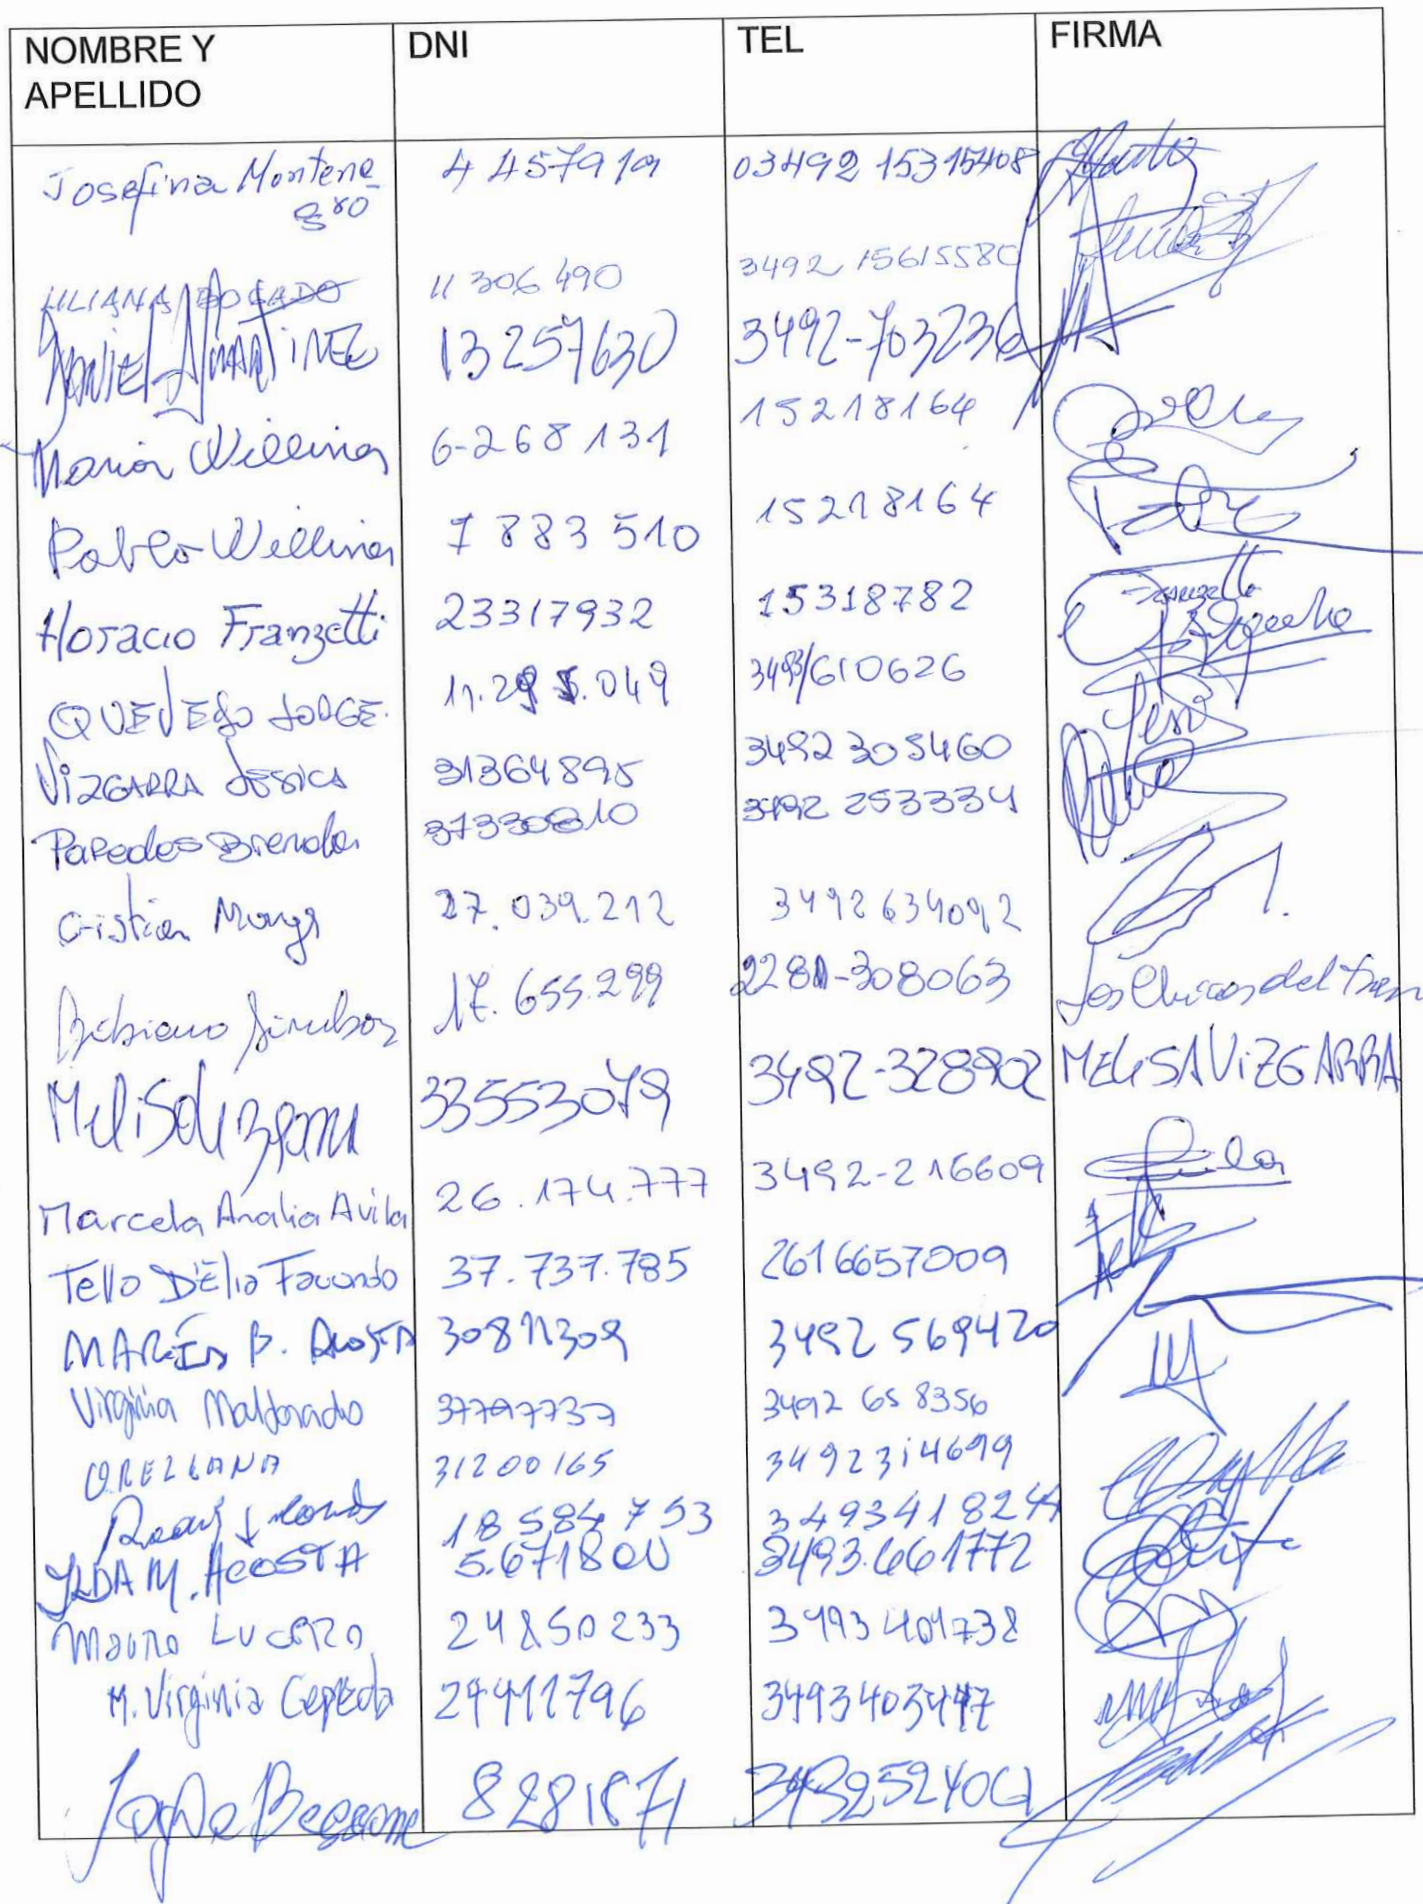 NOMBRE Y APELLIDO DNI TEL FIRMA
Josefina Montene_gro 4 457919 03492 15315408
LILIANA BOGADO 11 306 490 3492 15615580
DANIEL MARTINEZ 13 257630 3492-703236
Maria Willines 6-268 131 15218164
Pablo Willines 7 883 510 15218164
Horacio Franzetti 23317932 15318782
QUEVEDO JORGE. 3493/610626
VIZGARRA JESSICA 31364895 3492 305460
Paredes Brenda 3492 253334
Cristian 27.039.212 3492634092
17.655.299 2281-308063 Los Chicos del tren
33553079 3492-328902 MELISA VIZGARRA
Marcela Analia Avila 26.174.777 3492-216609
Tello D'Elia Facundo 37.737.785 2616657009
B. Acosta 30811309 3492 569420
Virginia Maldonado 37797737 3492 658356
ORELLANA 31200165 3492314699
18 584 753 3493418244
ILDA M. ACOSTA 5.671800 3493.661772
Mauro LUCERO 24850233 3493 404738
M. Virginia Cepeda 27411796 3493403447
8281871